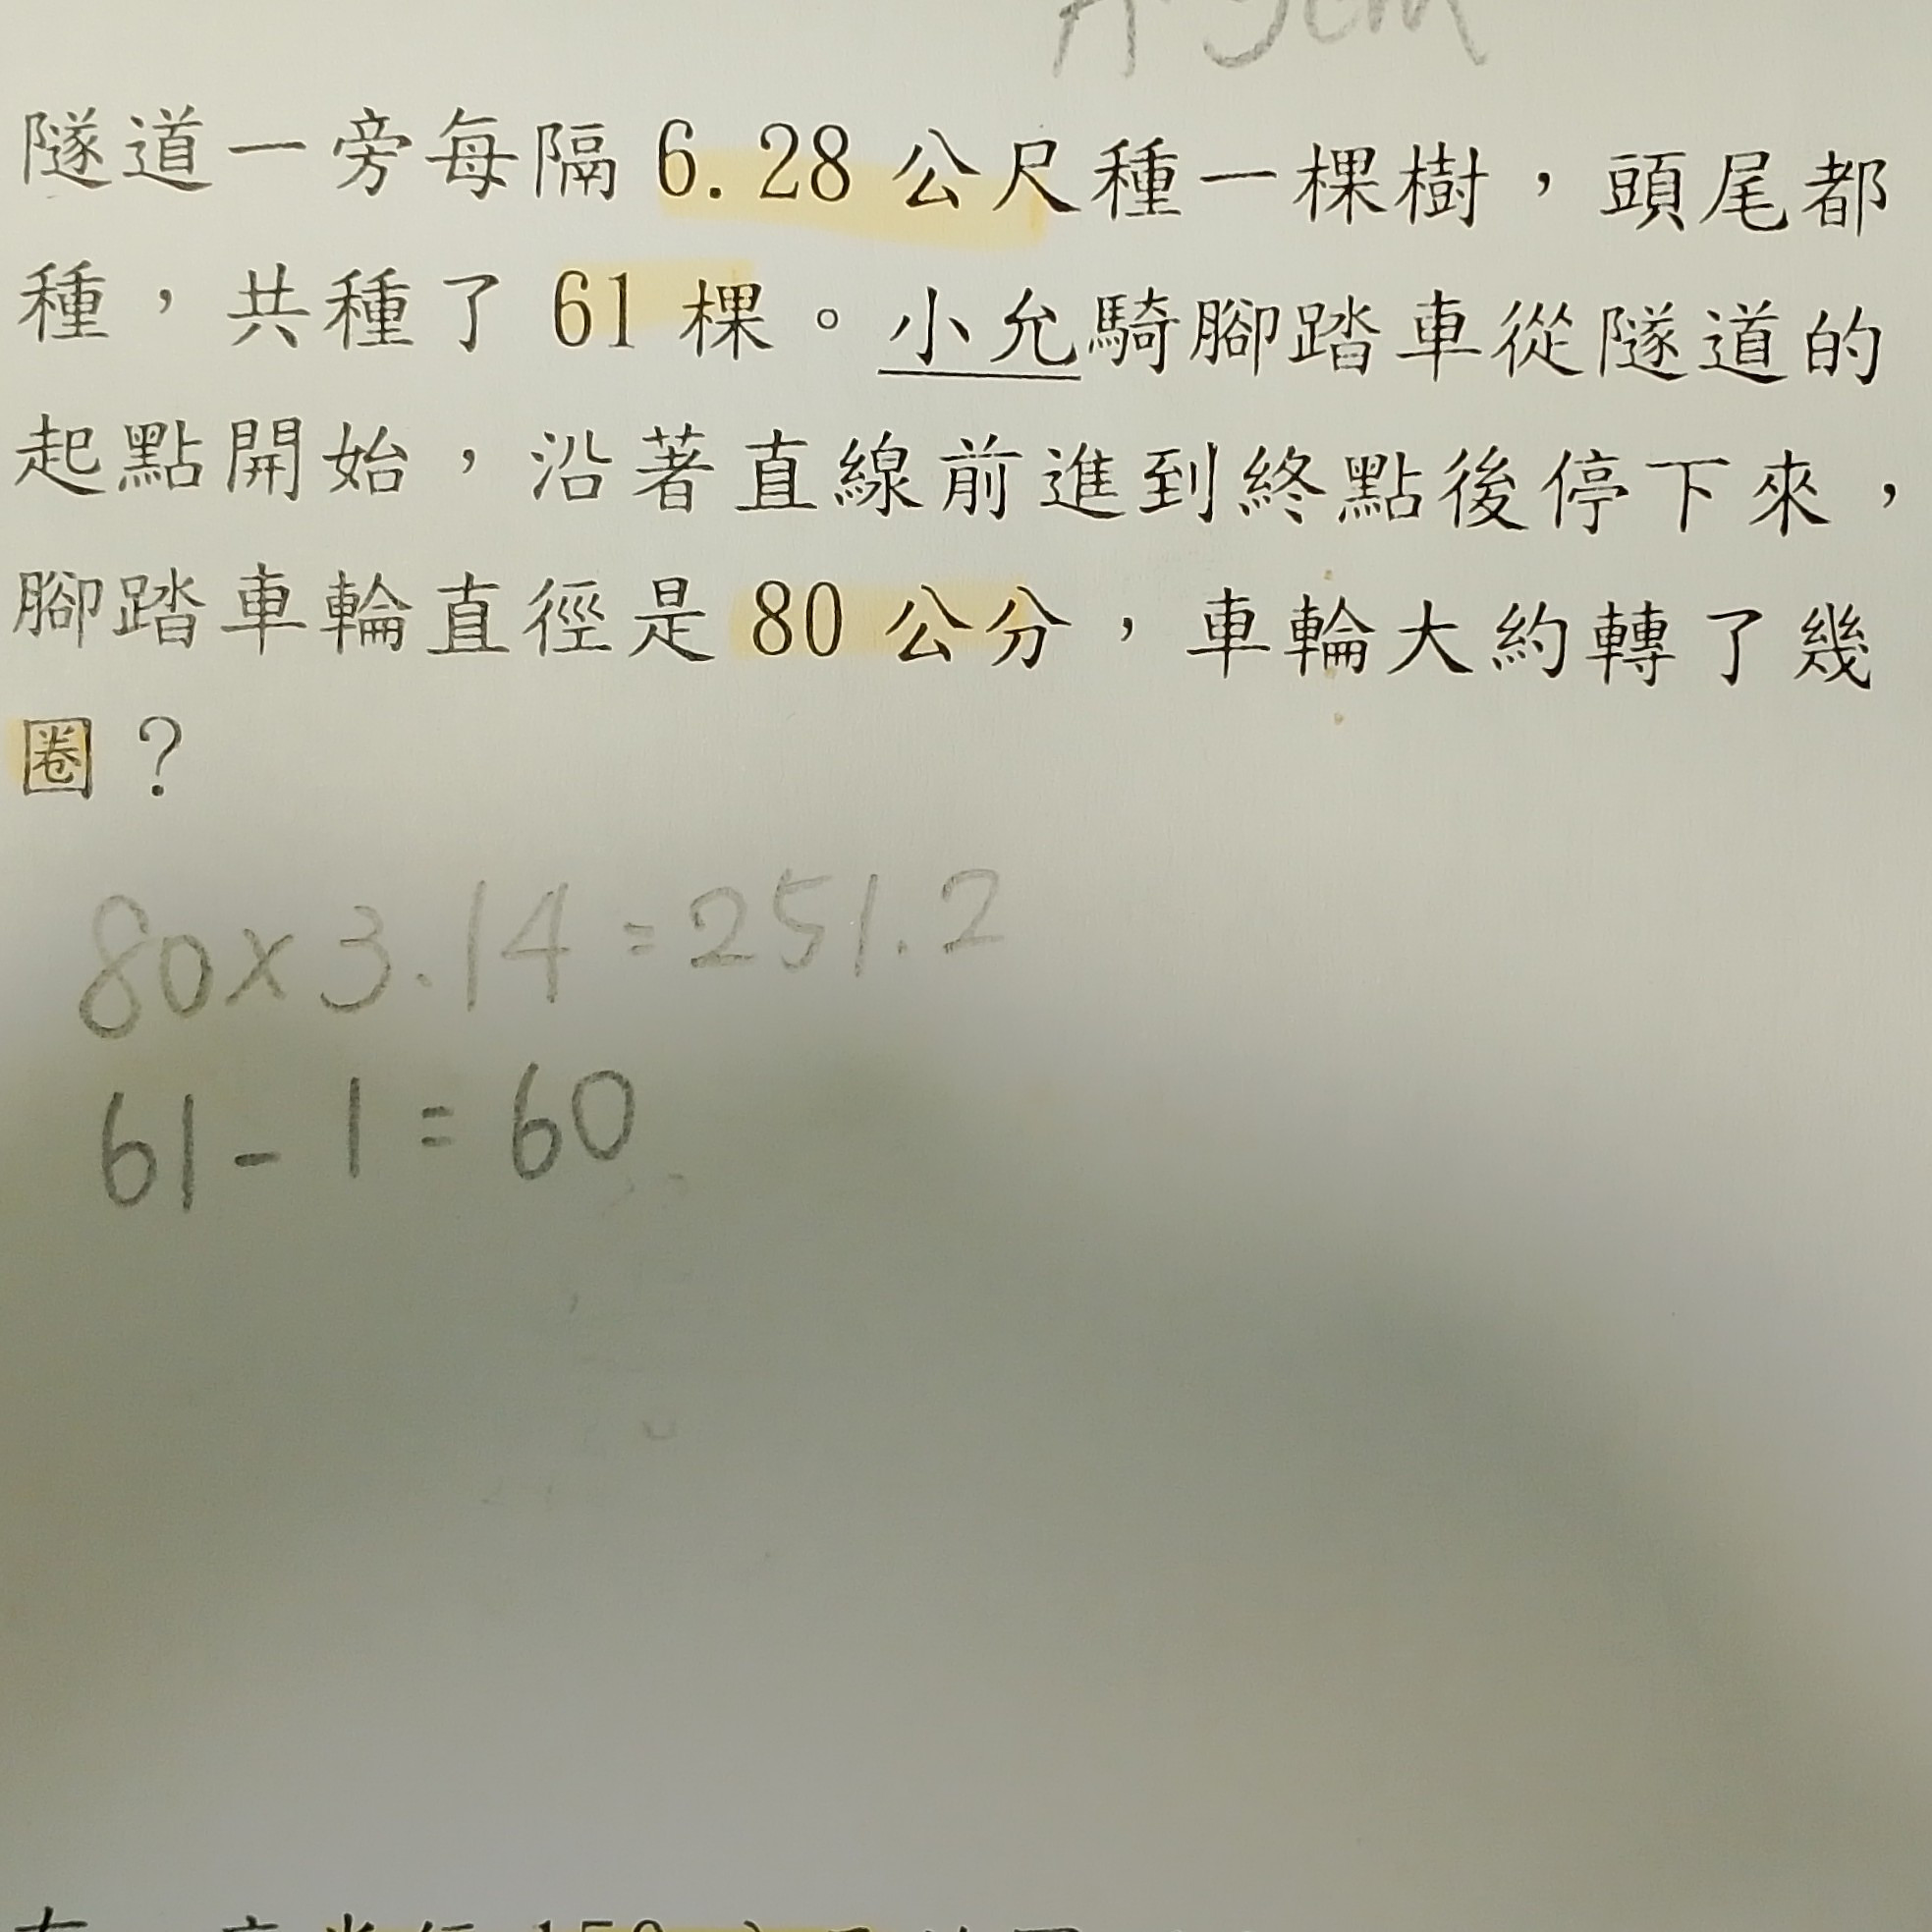 隧道一旁每隔 6.28 公尺種一棵樹，頭尾都
種，共種了 61 棵。小允騎腳踏車從隧道的
起點開始，沿著直線前進到終點後停下來，
腳踏車輪直徑是 80 公分，車輪大約轉了幾
圈？
80×3.14=251.2
61-1=60